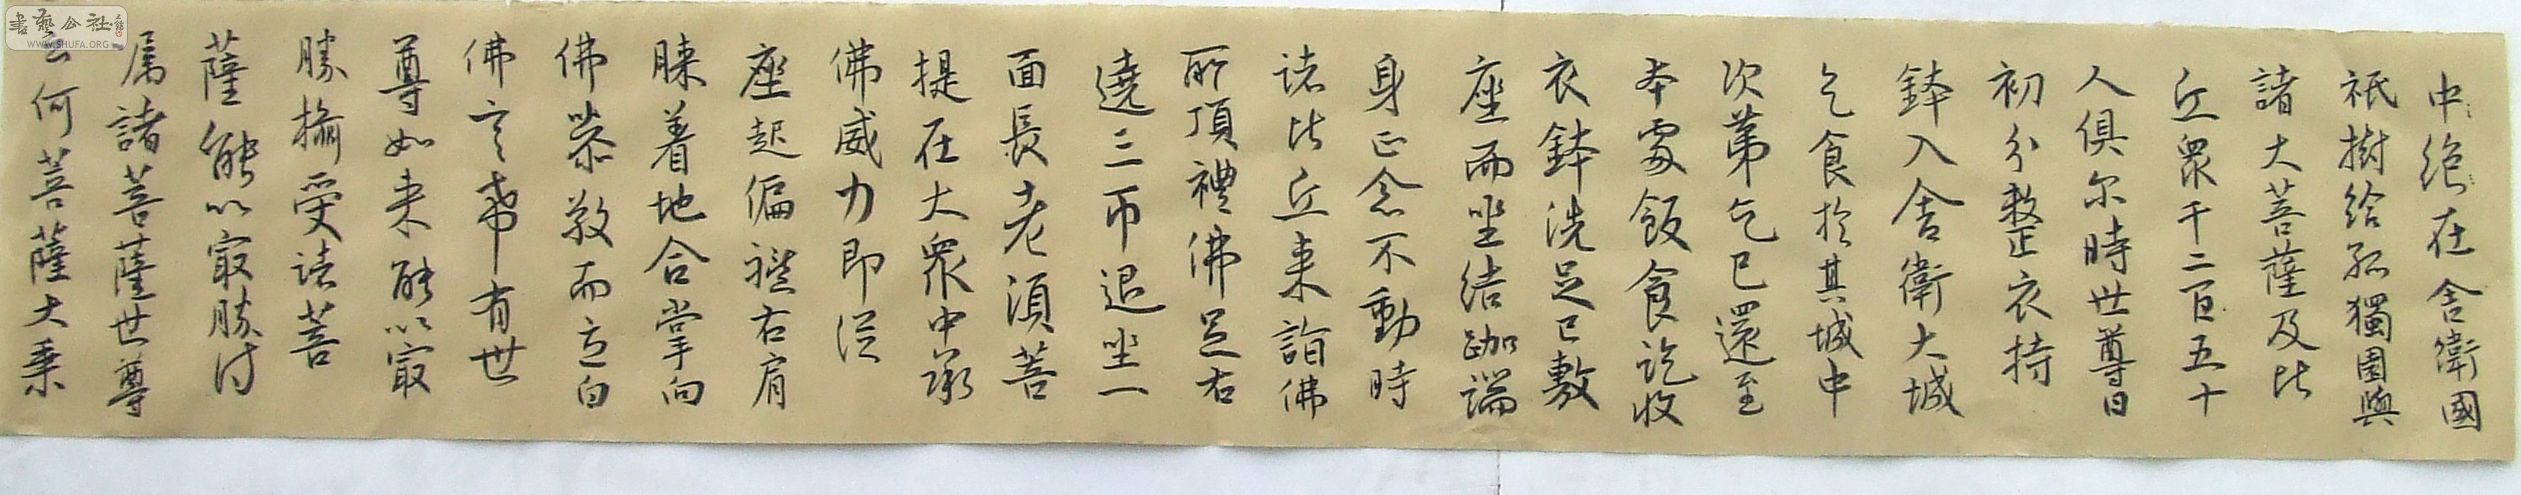 中绝在舍衛國
祇樹给孤獨園與
諸大菩薩及比
丘衆千二百五十
人俱尔時世尊日
初分整衣持
鉢入舍衛大城
乞食於其城中
次第乞已還至
本處飯食訖收
衣鉢洗足已敷
座而坐结跏端
身正念不動時
诸比丘来詣佛
所頂禮佛足右
遶三帀退坐一
面長老湏菩
提在大衆中承
佛威力即従
座起偏袒右肩
膝着地合掌向
佛恭敬而立白
佛言希有世
尊如来能以寂
勝攝受诸菩
薩能以寂勝付
属諸菩薩世尊
云何菩薩大乗
書藝公社
WWW.SHUFA.ORG